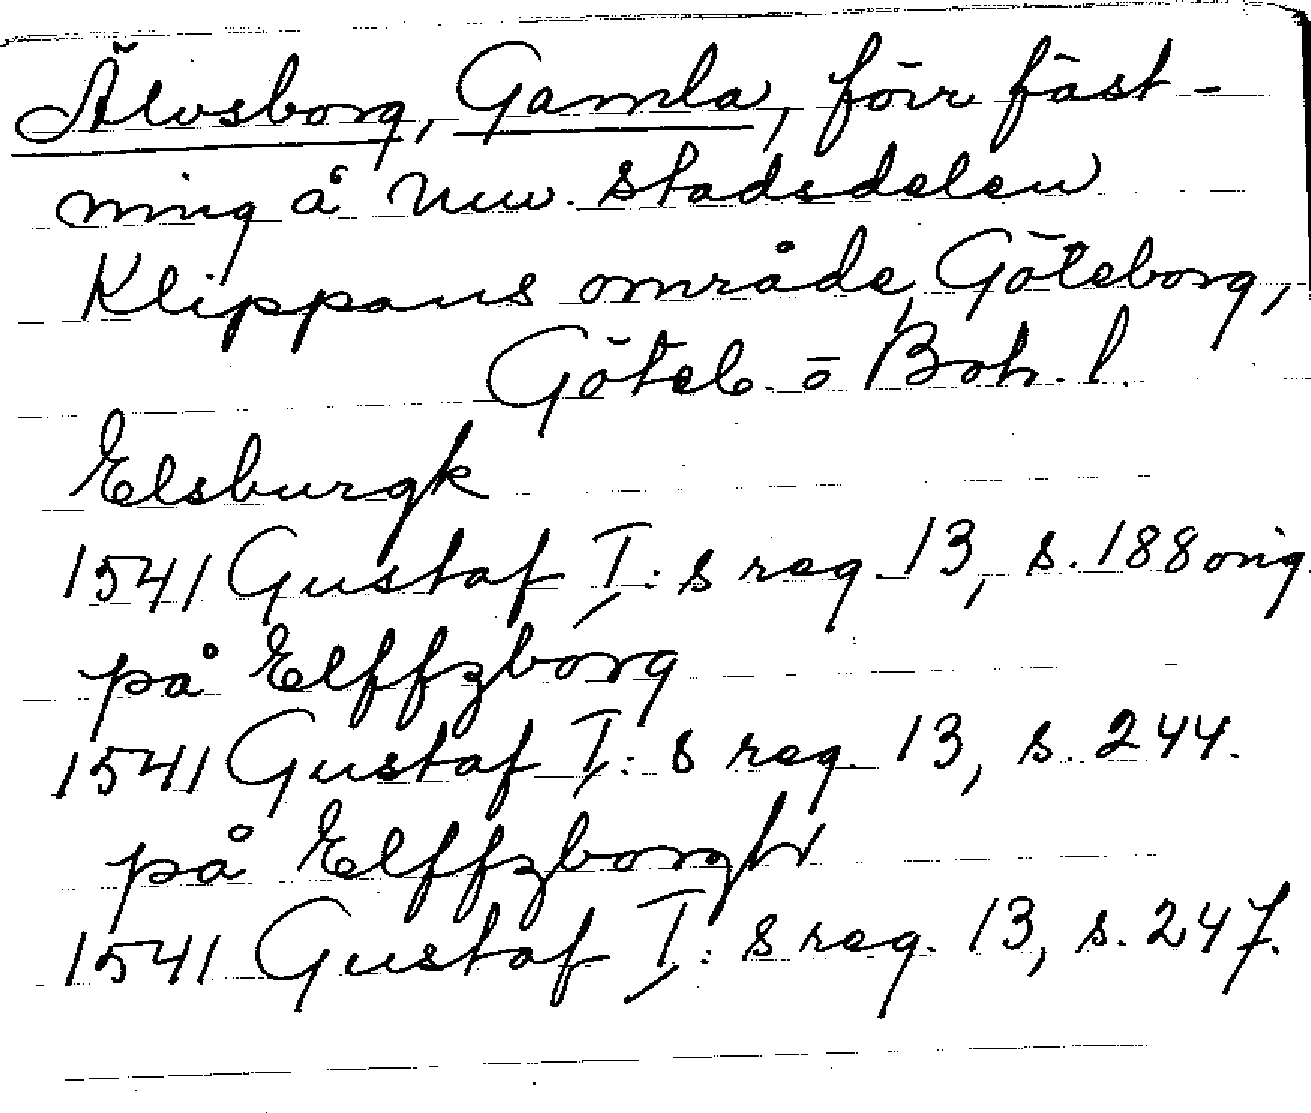 Älvsborg, Gamla, förr fäst-
ning å nuv. stadsdelen
Klippans område, Göteborg,
Göteb. o Boh. l.
Elsburgk
1541 Gustaf I:s reg. 13, s. 188 orig.
på Elffzborg
1541 Gustaf I:s reg. 13, s. 244.
på Elffzborgh
1541 Gustaf I:s reg. 13, s. 247.